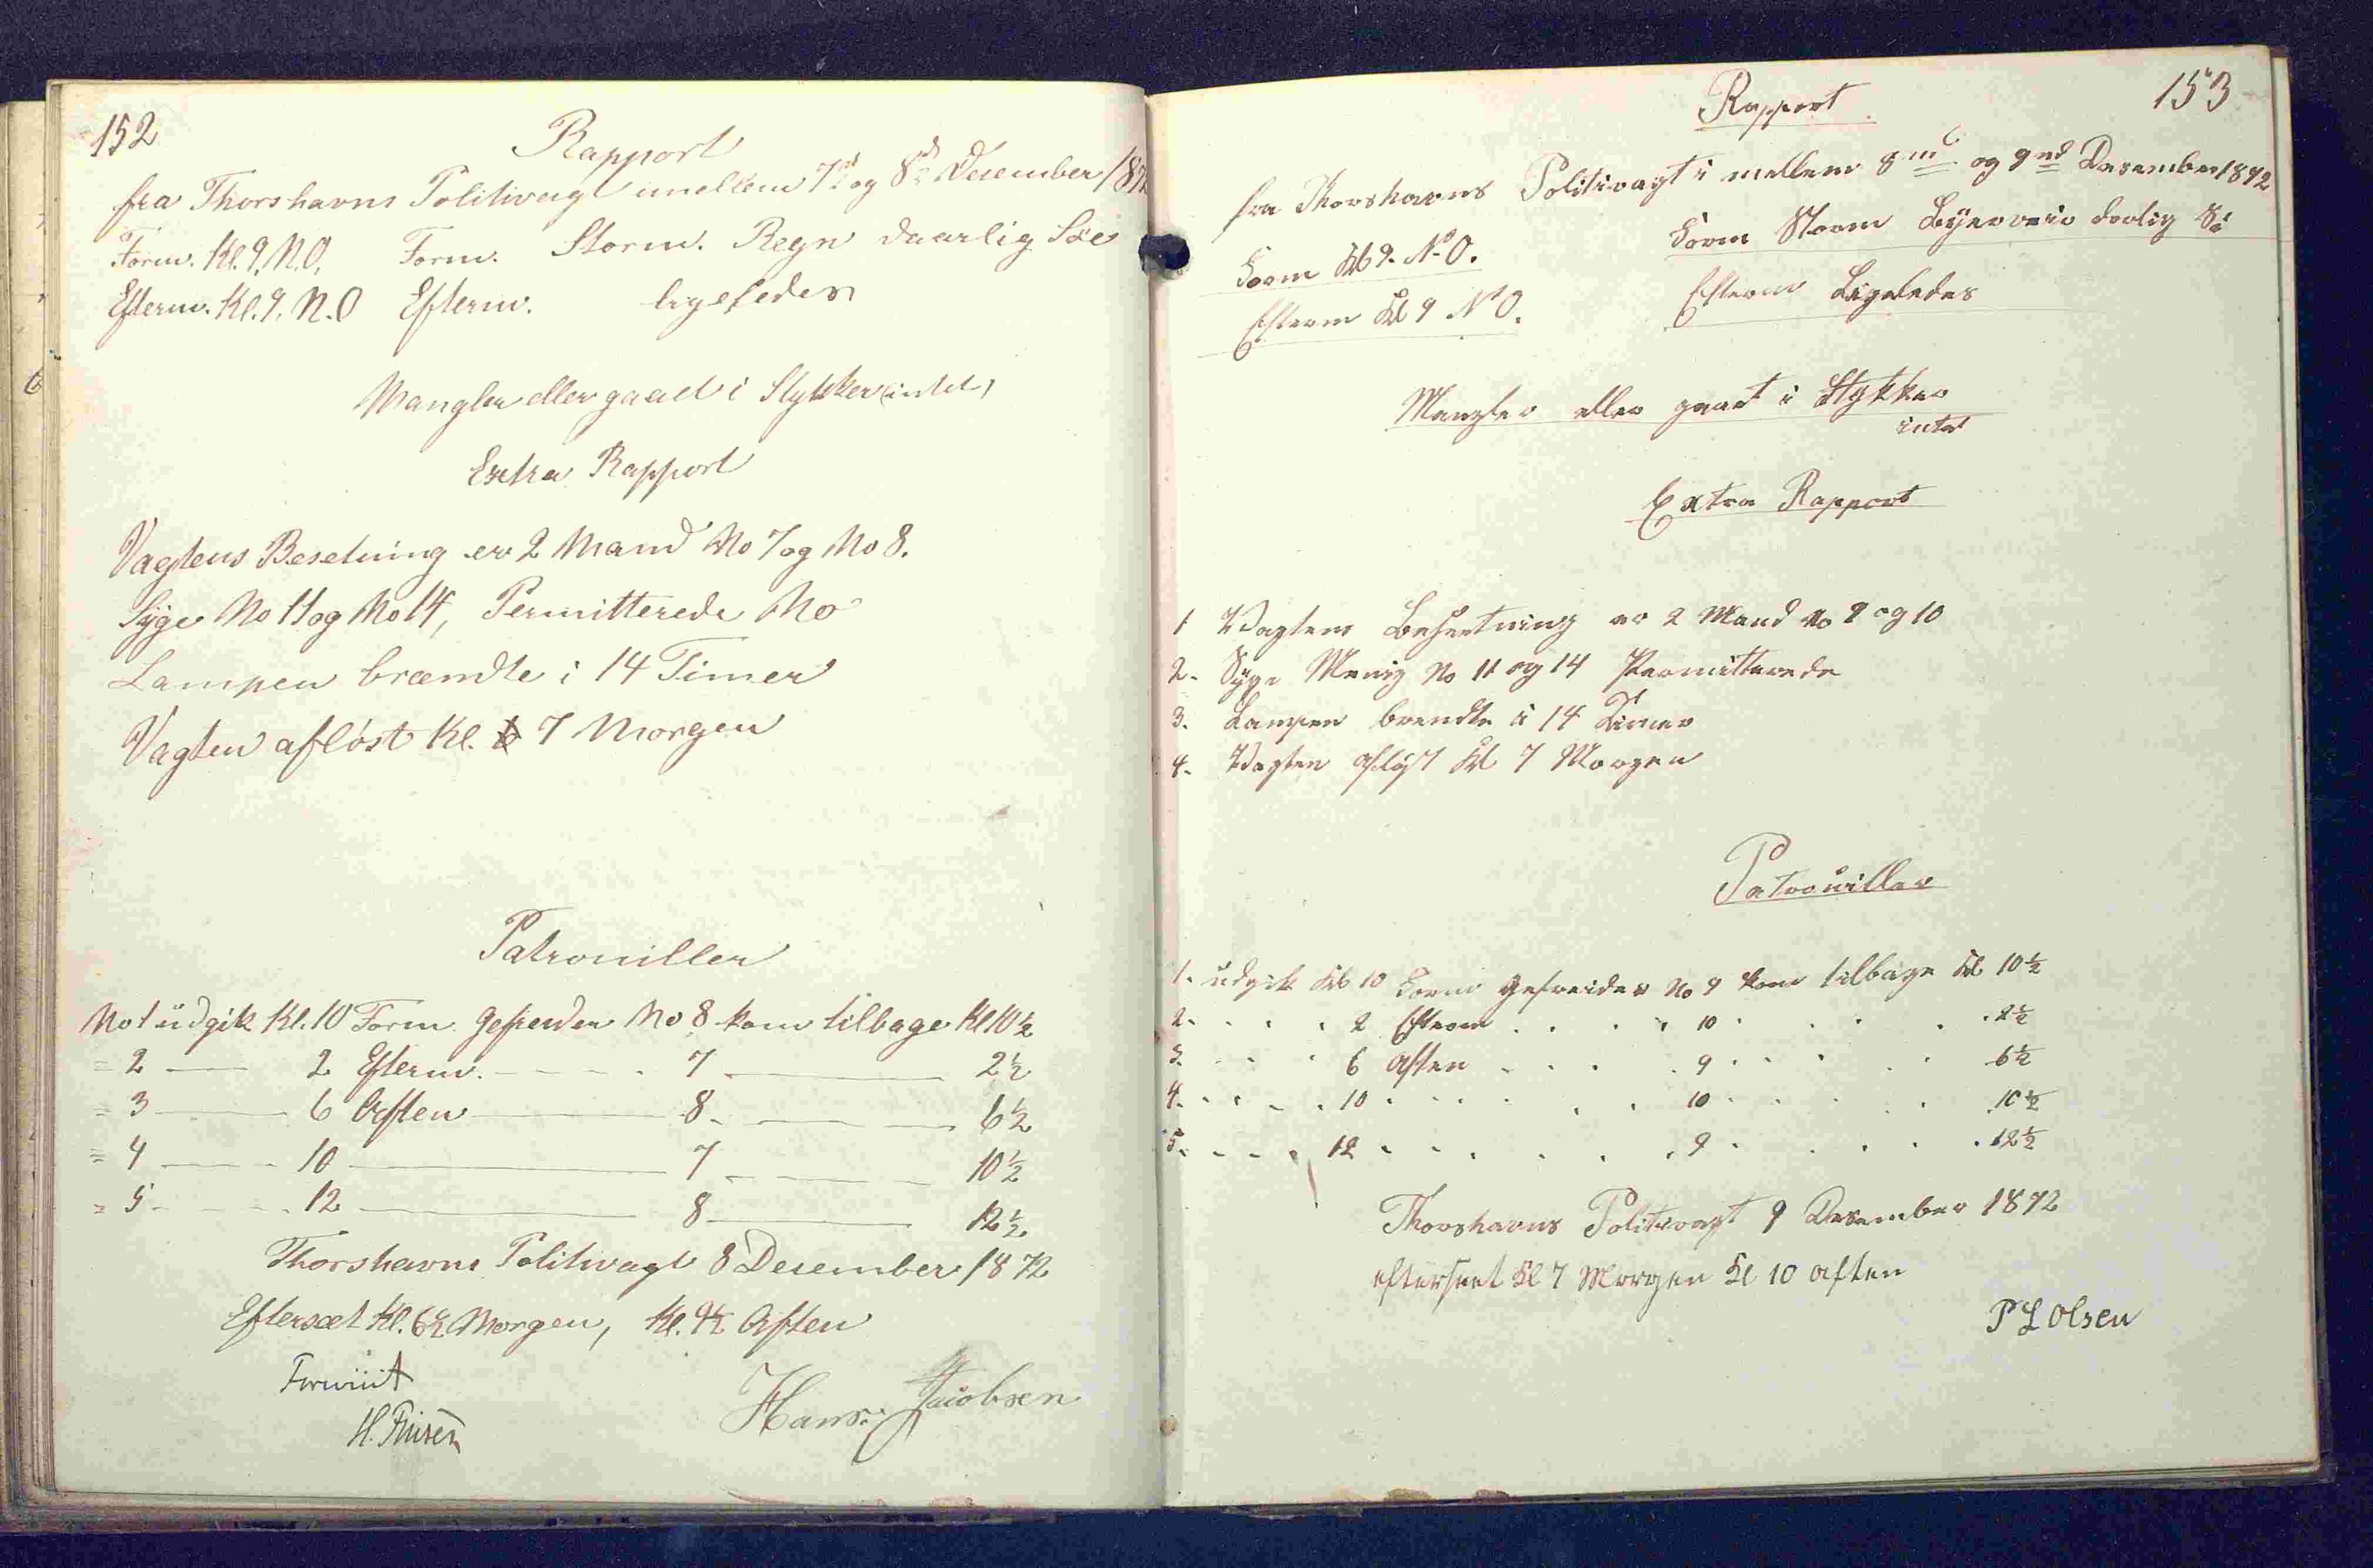 152
Rapport
fra Thorshavns Politivagt imellem 7de og 8de Desember 1872
Form. Kl. 9. N.O. Form. Storm. Regn daarlig Söe
Efterm. Kl. 9. N.O Efterm. ligeledes
Mangler eller gaaet i Stykker (intet)
Extra Rapport
Vagtens Besetning er 2 Mand No 7 og No 8.
Syge No 11 og No 14, Permitterede No
Lampen brændte i 14 Timer
Vagten aflöst Kl. 7 Morgen
Patrouiller
No 1 udgik Kl. 10 Form. Gefreider No 8 kom tilbage Kl 10½
= 2 — 2 Efterm. - - - - 7 — 2½
= 3 — 6 Aften — 8 — 6½
= 4 — 10 — 7 — 10½
= 5 - - - 12 — 8 — 12½
Thorshavns Politivagt 8 Desember 1872
Eftersæt Kl. 6½ Morgen, Kl. 9½ Aften
Hans Jacobsen
H. Finsen
153
Rapport
fra Thorshavns Politivagt i mellem 8de og 9de Desember 1872
Form Kl 9. N.O. Form Storm Byerveir dorlig Sö
Efterm Kl 9 N O. Efterm Ligeledes
Mangler eller gaaet i Stykker
intet
Extra Rapport
1 Vagtens Besætning er 2 Mand No 9 og 10
2. Syge Menig No 11 og 14 Permitterede
3. Lampen brendte i 14 Timer
4. Vagten afløst Kl 7 Morgen
Patrouiller
1. udgik Kl 10 Form Gefreider No 9 kom tilbage Kl 10½
2. . . . 2 Efterm . . . . 10 . . . . 2½
3. . . . 6 Aften . . . . 9 . . . . 6½
4. . . . 10 . . . . . 10 . . . . 10½
5. . . . 12 . . . . . 9 . . . . 12½
Thorshavns Politivagt 9 Desember 1872
efterseet Kl 7 Morgen Kl 10 aften
P L Olsen